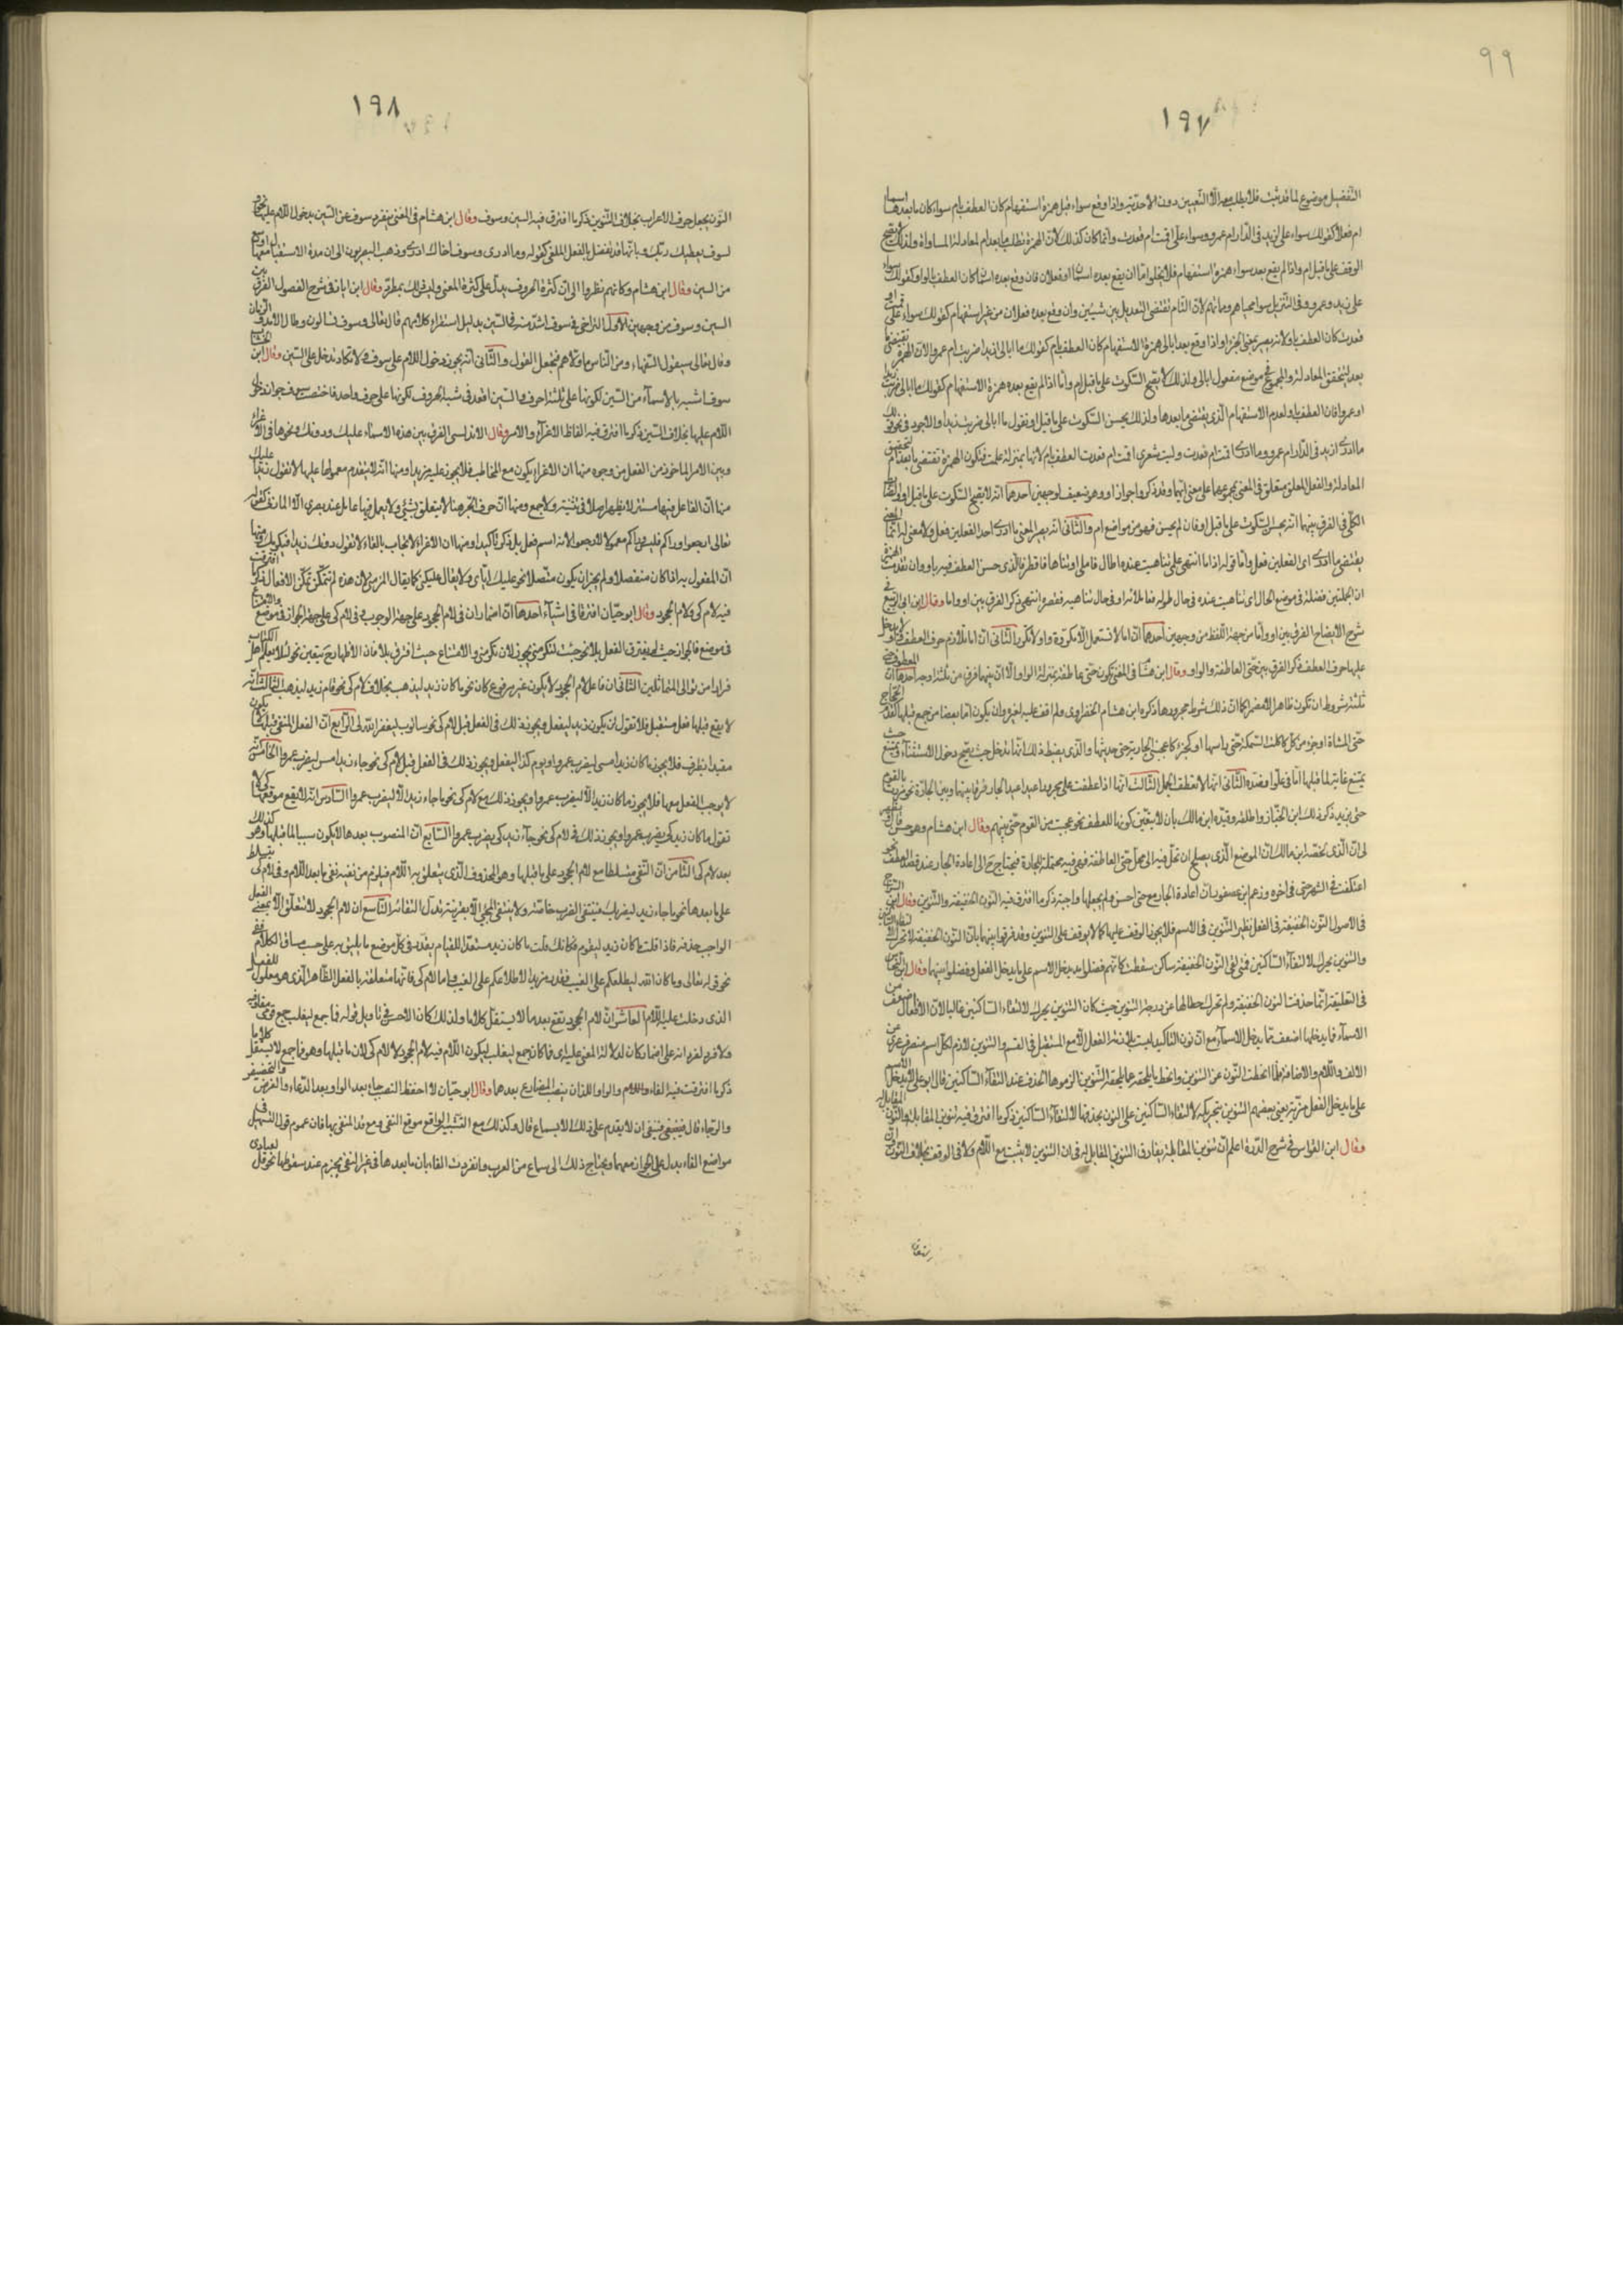 ٩٩
١٩٧
التفصيل موضوع لما قد ثبت فلا يطلب معه الا التعيين دون الاحدية واذا وقع سواء قبل همزة استفهام كان العطف بام سواء كان ما بعدها اسما
ام فعلا كقولك سواء علي ازيد في الدار ام عمرو وسواء علي اقمت ام قعدت وانما كان كذلك لان الهمزة تطلب ما بعد ام لمعادلة المساواة ولذلك يقبح
الوقف على ما قبل ام واذا لم يقع بعد سواء همزة استفهام فلا يخلو اما ان يقع بعده اسمان او فعلان فان وقع بعده اسمان كان العطف بالواو كقولك سواء
علي زيد وعمرو وفي التنزيل سواء محياهم ومماتهم لان التام تقتضي التعديل بين شيئين وان وقع بعده فعلان من غير استفهام كقولك سواء علي قمت او
قعدت كان العطف باو لانه يصير بمعنى الجزاء واذا وقع بعد ابالي همزة الاستفهام كان العطف بام كقولك ما ابالي ازيدا ضربت ام عمرا لان الهمزة تقتضي ما
بعد لتحقق المعادلة والمجموع في موضع مفعول ابالي ولذلك لا يقبح السكوت على ما قبل ام واما اذا لم يقع بعده همزة الاستفهام كقولك ما ابالي ضربت زيدا
او عمرا فان العطف باو لعدم الاستفهام الذي يقتضي ما بعدها ولذلك يحسن السكوت على ما قبل او تقول ما ابالي ضربت زيدا والاجود في نحو قولك
ما ادري ازيد في الدار ام عمرو وما ادري اقمت ام قعدت وليت شعري اقمت ام قعدت العطف بام لانها بمنزلة علمت فتكون الهمزة تقتضي ما بعد ام لتحقيق
المعادلة والفعل المعلق متعلق في المعنى بمجموعهما على معنى ايهما وقد ذكروا جواز او وهو ضعيف لوجهين احدهما انه لا يقبح السكوت على ما قبل او
الكلي في الفرق بينهما انه يحسن السكوت على ما قبل او فان لم يحسن فهو من مواضع ام والثاني انه يصير المعنى ما ادري احد الفعلين فعل ولا معنى له انما المعنى
يقتضي ما ادري اي الفعلين فعل واما قوله اذا ما انتهى علمي تناهيت عنده اطال فاملى او تناهى فاقصرا فالذي حسن العطف فيه باو وان تقدمت الهمزة
ان الجملتين فضلة في موضع الحال اي تناهيت عنده في حال طوله او في حال تناهيه فقصر انتهى ذكر الفرق بين او واما وقال ابن ابي الربيع في
شرح الايضاح الفرق بين او واما من جهة اللفظ من وجهين احدهما ان اما لا تستعمل الا مكررة واو لا تكرر الثاني ان اما تلازم حرف العطف واو لا يدخل
عليها حرف العطف ذكر الفرق بين حتى العاطفة والواو وقال ابن هشام في المغني تكون حتى عاطفة بمنزلة الواو الا ان بينهما فرق من ثلثة اوجه احدها ان المعطوف حتى
ثلثة شروط ان يكون ظاهرا لا مضمرا كما ان ذلك شرط مجرورها ذكره ابن هشام الخضراوي ولم اقف عليه لغيره وان يكون اما بعضا من جمع قبلها كقدم الحجاج
حتى المشاة او جزء من كل كاكلت السمكة حتى راسها او كجزء كاعجبتني الجارية حتى حديثها والذي يضبط ذلك انها تدخل حيث يصح دخول الاستثناء وتمتنع حيث
يمتنع غاية لما قبلها اما في علو او ضده الثاني انها لا تعطف الجمل الثالث انها اذا عطفت على مجرور اعيد الجار فرقا بينها وبين الجارة نحو مررت بالقوم
حتى بزيد ذكر ذلك ابن الخباز واطلقه وقيده ابن مالك بان لا يتعين كونها للعطف نحو عجبت من القوم حتى بنيهم وقال ابن هشام وهو حسن
لي ان الذي لحظه ابن مالك ان الموضع الذي يصلح ان تحل فيه الى محل حتى العاطفة فهي فيه محتملة للجارة فيحتاج ح الى اعادة الجار عند قصد العطف نحو
اعتكفت في الشهر حتى في اخره وزعم ابن عصفور ان اعادة الجار مع حتى احسن ولم يجعلها واجبة ذكر ما افترق فيه النون الخفيفة والتنوين وقال ابن السراج
في الاصول النون الخفيفة في الفعل نظير التنوين في الاسم فلا يجوز الوقف عليها كما لا يوقف على التنوين وقد فرقوا بينهما بان النون الخفيفة لا تحرك لالتقاء الساكنين
والتنوين يحرك لالتقاء الساكنين فمتى لقي النون الخفيفة ساكن سقطت كانهم فضلوا ما يدخل الاسم على ما يدخل الفعل وفصلوا بينهما وقال ابن النحاس
في التعليقة انما حذفت النون الخفيفة ولم تحرك حطا لها عن درجة التنوين حيث كان التنوين يحرك لالتقاء الساكنين غالبا لان الافعال اضعف من
الاسماء فما يدخلها اضعف مما يدخل الاسماء مع ان نون التاكيد ليست بلازمة الفعل الا مع المستقبل في القسم والتنوين لازم لكل اسم منصرف عري من
الالف واللام والاضافة فلما انحطت النون عن التنوين وانحط ما تلحقه عما يلحقه التنوين الزموها الحذف عند التقاء الساكنين قال ابو علي لما يدخل الاسم
على ما يدخل الفعل مزية يعني تفضيلهم التنوين بتحريكه لالتقاء الساكنين على النون بحذفها لالتقاء الساكنين ذكر ما افترق فيه تنوين المقابلة والنون المقابل له
وقال ابن القواس في شرح الدرة اعلم ان تنوين المقابلة يفارق النون المقابل له في ان التنوين لا يثبت مع اللام ولا في الوقف بخلاف النون وان
١٩٨
النون يجعل حرف الاعراب بخلاف التنوين ذكر ما افترق فيه السين وسوف وقال ابن هشام في المغني تنفرد سوف عن السين بدخول اللام عليها نحو
لسوف يعطيك ربك وبانها قد تفصل بالفعل الملغى كقوله وما ادري وسوف اخال ادري وذهب البصريون الى ان مدة الاستقبال معها اوسع
من السين وقال ابن هشام وكانهم نظروا الى ان كثرة الحروف تدل على كثرة المعنى وليس ذلك بمطرد وقال ابن اياز في شرح الفصول الفرق بين
السين وسوف من وجهين الاول التراخي في سوف اشد منه في السين بدليل استقراء كلامهم قال تعالى وسوف تسالون وطال الامد والزمان
وقال تعالى سيقول السفهاء من الناس ما ولاهم فتعجل القول والثاني انه يجوز دخول اللام على سوف ولا تكاد تدخل على السين وقال ابن الخشاب
سوف اشبه بالاسماء من السين لكونها على ثلثة احرف والسين اقعد في شبه الحروف لكونها على حرف واحد فاختصت سوف بجواز دخول
اللام عليها بخلاف السين ذكر ما افترق فيه الفاظ الاغراء والامر وقال الاندلسي الفرق بين هذه الاسماء عليك ودونك ونحوها في الاغراء
وبين الامر الماخوذ من الفعل من وجوه منها ان الاغراء يكون مع المخاطب فلا يجوز عليه زيدا ومنها انه لا يتقدم معمولها عليها لا تقول زيدا عليك
منها ان الفاعل فيها مستتر لا يظهر اصلا في تثنية ولا جمع ومنها ان حرف الجر هنا لا يتعلق بشيء ولا يعمل فيها عامل عند بصري الا المازني كقوله
تعالى ارجعوا وراءكم فليس وراءكم معمولا لارجعوا لانه اسم فعل بل ذكر تاكيدا ومنها ان الاغراء لا يجاب بالفاء لا تقول دونك زيدا فيكرمك ومنها
ان المفعول به اذا كان منفصلا ولم يجز ان يكون متصلا نحو عليك اياي ولا يقال عليكني كما يقال الزمني لان هذه لم تتمكن تمكن الافعال ذكر ما افترقت
فيه لام كي ولام الجحود وقال ابو حيان افترقا في اشياء احدها ان اضمار ان في لام الجحود على جهة الوجوب وفي لام كي على جهة الجواز في موضع والامتناع
في موضع فالجواز حيث لم يقترن الفعل بلا نحو جئت لتكرمني يجوز لان تكرمني والامتناع حيث اقترن بلا فان الاظهار ح يتعين نحو لئلا يعلم اهل الكتاب
فرارا من توالي المتماثلين الثاني ان فاعل لام الجحود لا يكون غير مرفوع كان نحو ما كان زيد ليذهب بخلاف لام كي نحو قام زيد ليذهب الثالث انه
لا يقع قبلها فعل مستقبل فلا تقول لن يكون زيد ليفعل ويجوز ذلك في الفعل قبل لام كي نحو ساتوب ليغفر الله لي الرابع ان الفعل المنفي قبلها لا يكون
مقيدا بظرف فلا يجوز ما كان زيد امس ليضرب عمرا ويوم كذا ليفعل ويجوز ذلك في الفعل قبل لام كي نحو جاء زيد امس ليضرب عمرا الخامس انه
لا يوجب الفعل معها فلا يجوز ما كان زيد الا ليضرب عمرا ويجوز ذلك مع لام كي نحو ما جاء زيد الا ليضرب عمرا السادس انه لا يقع موقعها كي لا
تقول ما كان زيد كي يضرب عمرا ويجوز ذلك في لام كي نحو جاء زيد كي يضرب عمرا السابع ان المنصوب بعدها لا يكون سببا لما قبلها وهو كذلك
بعد لام كي الثامن ان النفي متسلط مع لام الجحود على ما قبلها وهو المحذوف الذي يتعلق به اللام فيلزم من نفيه نفي ما بعد اللام وفي لام كي يتسلط
على ما بعدها نحو ما جاء زيد ليضربك فينتفي الضرب خاصة ولا ينتفي المجيء الا بقرينة تدل على انتفائه التاسع ان لام الجحود لا تتعلق الا بمعنى الفعل
الواجب حذفه فاذا قلت ما كان زيد ليقوم فكانك قلت ما كان زيد مستعدا للقيام يقدر في كل موضع ما يليق به على حسب مساق الكلام ففي
نحو قوله تعالى وما كان الله ليطلعكم على الغيب يقدر مريدا لاطلاعكم على الغيب واما لام كي فانها متعلقة بالفعل الظاهر الذي هو معلول للفعل
الذي دخلت عليه اللام العاشر ان لام الجحود تقع بعد ما لا يستقل كلاما ولذلك كان الاحسن في تاويل قوله فما جمع ليغلب جمع قومي مقاومة
ولا فرد لفرد انه على اضمار كان لدلالة المعنى عليه اي فما كان جمع ليغلب ليكون اللام فيه لام الجحود لا لام كي لان ما قبلها وهو فما جمع لا يستقل كلاما
ذكر ما افترقت فيه الفاء والواو اللذان ينصب المضارع بعدهما وقال ابو حيان لا احفظ النصب جاء بعد الواو بعد الدعاء والعرض والتحضيض
والرجاء قال فينبغي ان لا يقدم على ذلك الا بسماع قال وكذلك مع التشبيه الواقع موقع النفي ومع قد المنفي بها فان عموم قول التسهيل في
مواضع الفاء يدل على الجواز معها ويحتاج ذلك الى سماع من العرب وانفردت الفاء بان ما بعدها في غير النفي يجزم عند سقوطها نحو قل لعبادي